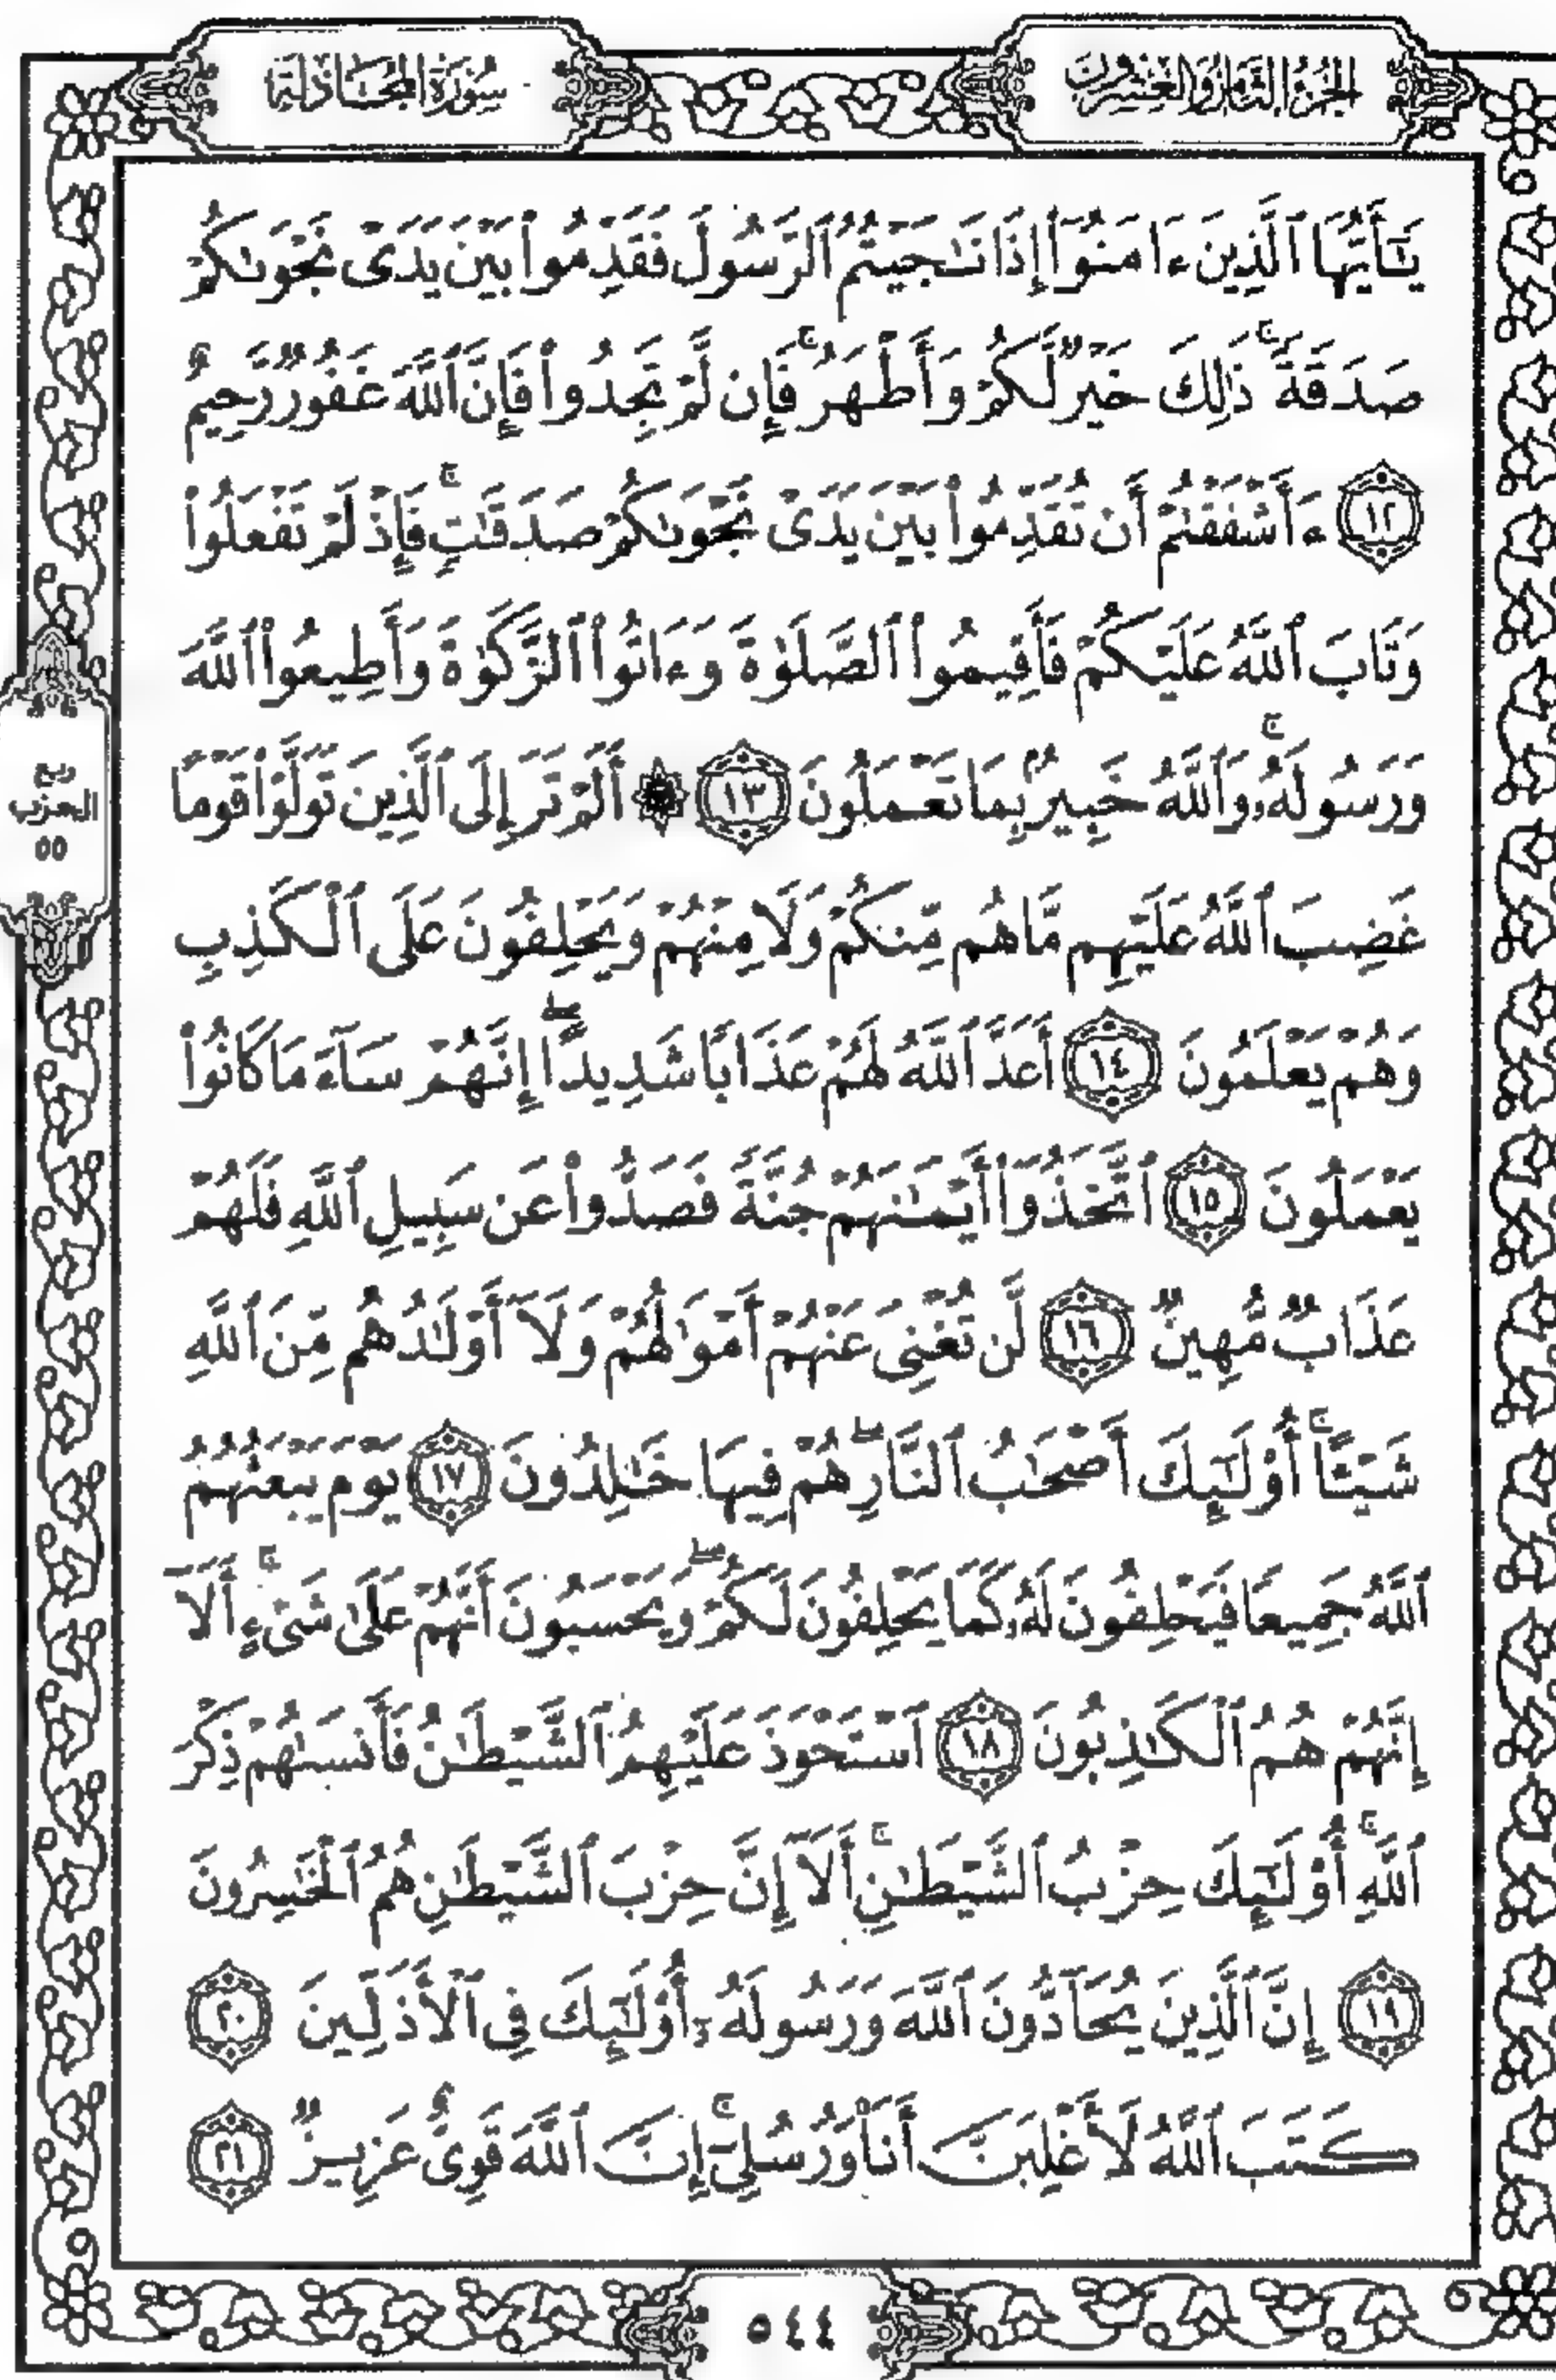 الجزء الثامن والعشرون
سورة المجادلة
يَٰٓأَيُّهَا ٱلَّذِينَ ءَامَنُوٓا۟ إِذَا نَٰجَيْتُمُ ٱلرَّسُولَ فَقَدِّمُوا۟ بَيْنَ يَدَىْ نَجْوَىٰكُمْ
صَدَقَةً ۚ ذَٰلِكَ خَيْرٌ لَّكُمْ وَأَطْهَرُ ۚ فَإِن لَّمْ تَجِدُوا۟ فَإِنَّ ٱللَّهَ غَفُورٌ رَّحِيمٌ
١٢ ءَأَشْفَقْتُمْ أَن تُقَدِّمُوا۟ بَيْنَ يَدَىْ نَجْوَىٰكُمْ صَدَقَٰتٍ ۚ فَإِذْ لَمْ تَفْعَلُوا۟
وَتَابَ ٱللَّهُ عَلَيْكُمْ فَأَقِيمُوا۟ ٱلصَّلَوٰةَ وَءَاتُوا۟ ٱلزَّكَوٰةَ وَأَطِيعُوا۟ ٱللَّهَ
وَرَسُولَهُۥ ۚ وَٱللَّهُ خَبِيرٌۢ بِمَا تَعْمَلُونَ ١٣ ۞ أَلَمْ تَرَ إِلَى ٱلَّذِينَ تَوَلَّوْا۟ قَوْمًا
ربع
الحزب
٥٥
غَضِبَ ٱللَّهُ عَلَيْهِم مَّا هُم مِّنكُمْ وَلَا مِنْهُمْ وَيَحْلِفُونَ عَلَى ٱلْكَذِبِ
وَهُمْ يَعْلَمُونَ ١٤ أَعَدَّ ٱللَّهُ لَهُمْ عَذَابًا شَدِيدًا ۖ إِنَّهُمْ سَآءَ مَا كَانُوا۟
يَعْمَلُونَ ١٥ ٱتَّخَذُوٓا۟ أَيْمَٰنَهُمْ جُنَّةً فَصَدُّوا۟ عَن سَبِيلِ ٱللَّهِ فَلَهُمْ
عَذَابٌ مُّهِينٌ ١٦ لَّن تُغْنِىَ عَنْهُمْ أَمْوَٰلُهُمْ وَلَآ أَوْلَٰدُهُم مِّنَ ٱللَّهِ
شَيْـًٔا ۚ أُو۟لَٰٓئِكَ أَصْحَٰبُ ٱلنَّارِ ۖ هُمْ فِيهَا خَٰلِدُونَ ١٧ يَوْمَ يَبْعَثُهُمُ
ٱللَّهُ جَمِيعًا فَيَحْلِفُونَ لَهُۥ كَمَا يَحْلِفُونَ لَكُمْ ۖ وَيَحْسَبُونَ أَنَّهُمْ عَلَىٰ شَىْءٍ ۚ أَلَآ
إِنَّهُمْ هُمُ ٱلْكَٰذِبُونَ ١٨ ٱسْتَحْوَذَ عَلَيْهِمُ ٱلشَّيْطَٰنُ فَأَنسَىٰهُمْ ذِكْرَ
ٱللَّهِ ۚ أُو۟لَٰٓئِكَ حِزْبُ ٱلشَّيْطَٰنِ ۚ أَلَآ إِنَّ حِزْبَ ٱلشَّيْطَٰنِ هُمُ ٱلْخَٰسِرُونَ
١٩ إِنَّ ٱلَّذِينَ يُحَآدُّونَ ٱللَّهَ وَرَسُولَهُۥٓ أُو۟لَٰٓئِكَ فِى ٱلْأَذَلِّينَ ٢٠
كَتَبَ ٱللَّهُ لَأَغْلِبَنَّ أَنَا۠ وَرُسُلِىٓ ۚ إِنَّ ٱللَّهَ قَوِىٌّ عَزِيزٌ ٢١
٥٤٤